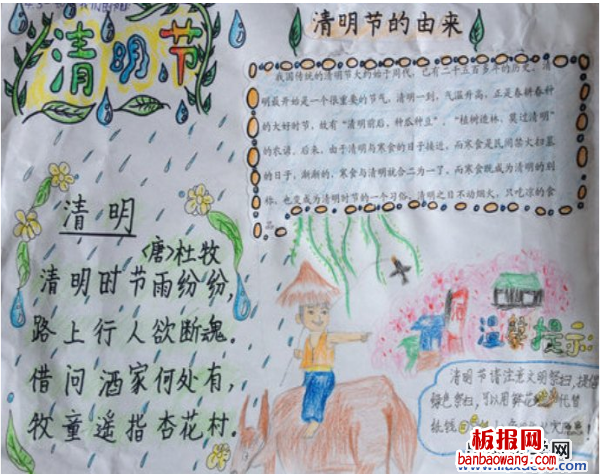 清明节
清明
〈唐〉杜牧
清明时节雨纷纷，
路上行人欲断魂。
借问酒家何处有，
牧童遥指杏花村。
清明节的由来
我国传统的清明节大约始于周代，已有二千五百多年的历史。清
明最开始是一个很重要的节气，清明一到，气温升高，正是春耕春种
的大好时节，故有“清明前后，种瓜种豆”。“植树造林，莫过清明”
的农谚。后来，由于清明与寒食的日子接近，而寒食是民间禁火扫墓
的日子，渐渐的，寒食与清明就合二为一了，而寒食既成为清明的别
称，也变成为清明时节的一个习俗，清明之日不动烟火，只吃凉的食
品。
温馨提示
清明节请注意文明祭扫，提倡
绿色祭扫，可以用鲜花代替
纸钱
板报网
banbaowang.com